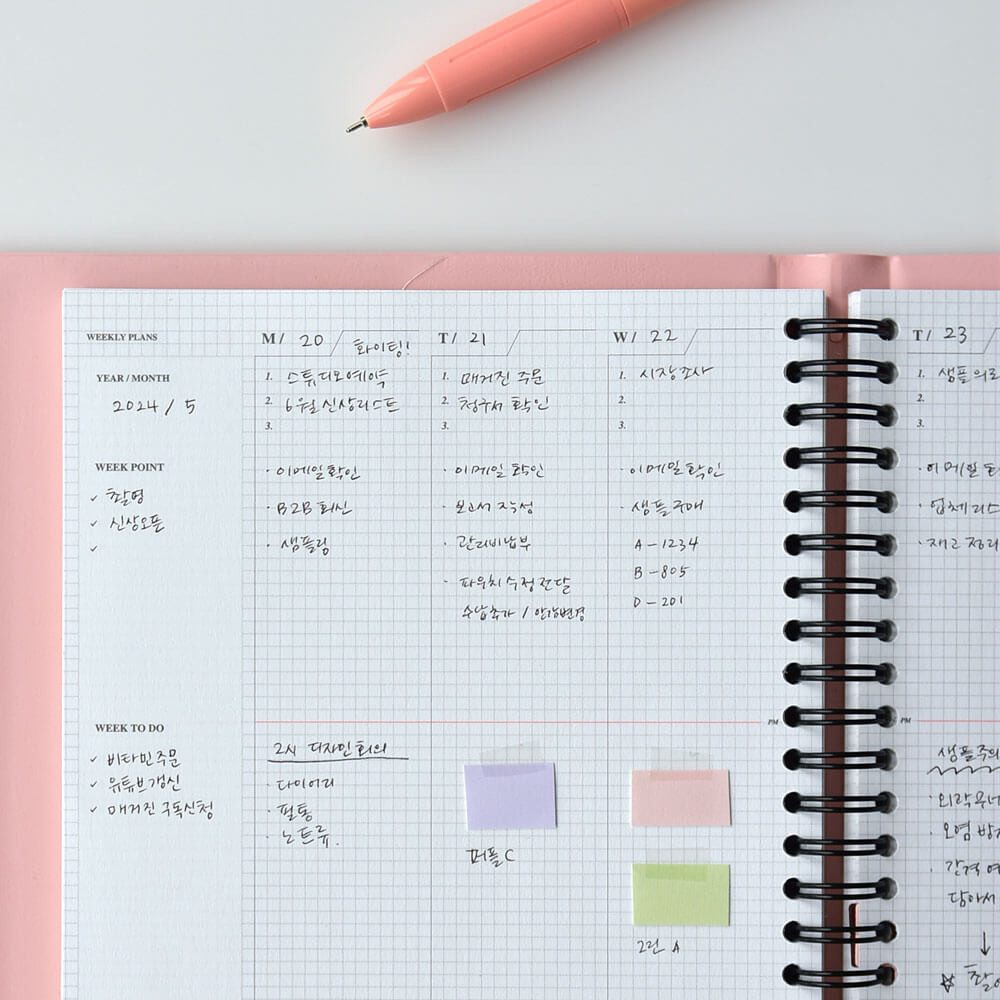 WEEKLY PLANS
YEAR / MONTH
2024 / 5
WEEK POINT
✓ 촬영
✓ 신상오픈
✓
WEEK TO DO
✓ 비타민주문
✓ 유튜브갱신
✓ 매거진 구독신청
M / 20 화이팅!
1. 스튜디오예약
2. 6월 신상리스트
3.
· 이메일확인
· B2B 회신
· 샘플링
2시 디자인회의
· 다이어리
· 필통
· 노트류.
T / 21
1. 매거진 주문
2. 청구서 확인
3.
· 이메일 확인
· 보고서 작성
· 관리비납부
· 파우치수정전달
수납추가 / 안감변경
퍼플 C
W / 22
1. 시장조사
2.
3.
· 이메일확인
· 샘플구매
A - 1234
B - 805
D - 201
PM
A
T / 23
1. 샘플의
2.
3.
· 이메일
· 업체리스
· 재고정리
PM
샘플주의
· 오염 방
· 간격
담아서
↓